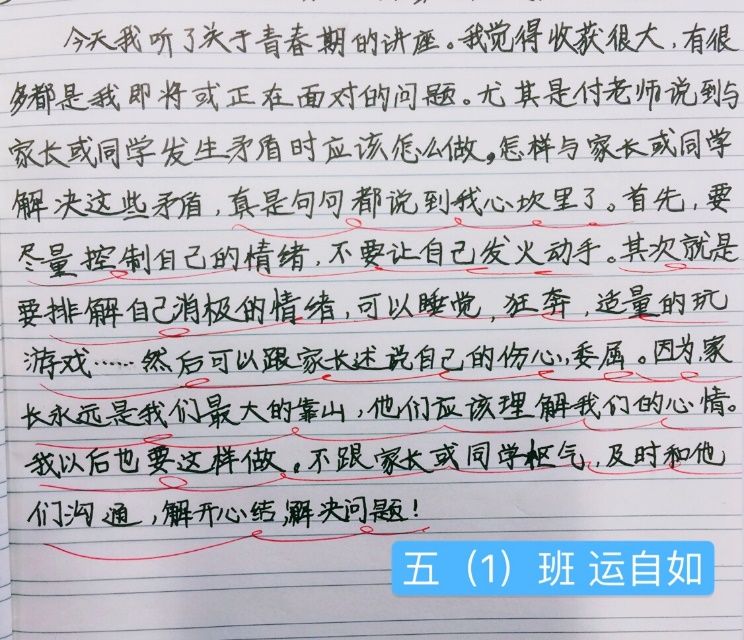 今天我听了关于青春期的讲座。我觉得收获很大，有很
多都是我即将或正在面对的问题。尤其是付老师说到与
家长或同学发生矛盾时应该怎么做，怎样与家长或同学
解决这些矛盾，真是句句都说到我心坎里了。首先，要
尽量控制自己的情绪，不要让自己发火动手。其次就是
要排解自己消极的情绪，可以睡觉，狂奔，适量的玩
游戏……然后可以跟家长述说自己的伤心，委屈。因为家
长永远是我们最大的靠山，他们应该理解我们的心情。
我以后也要这样做。不跟家长或同学怄气，及时和他
们沟通，解开心结，解决问题！
五（1）班 运自如